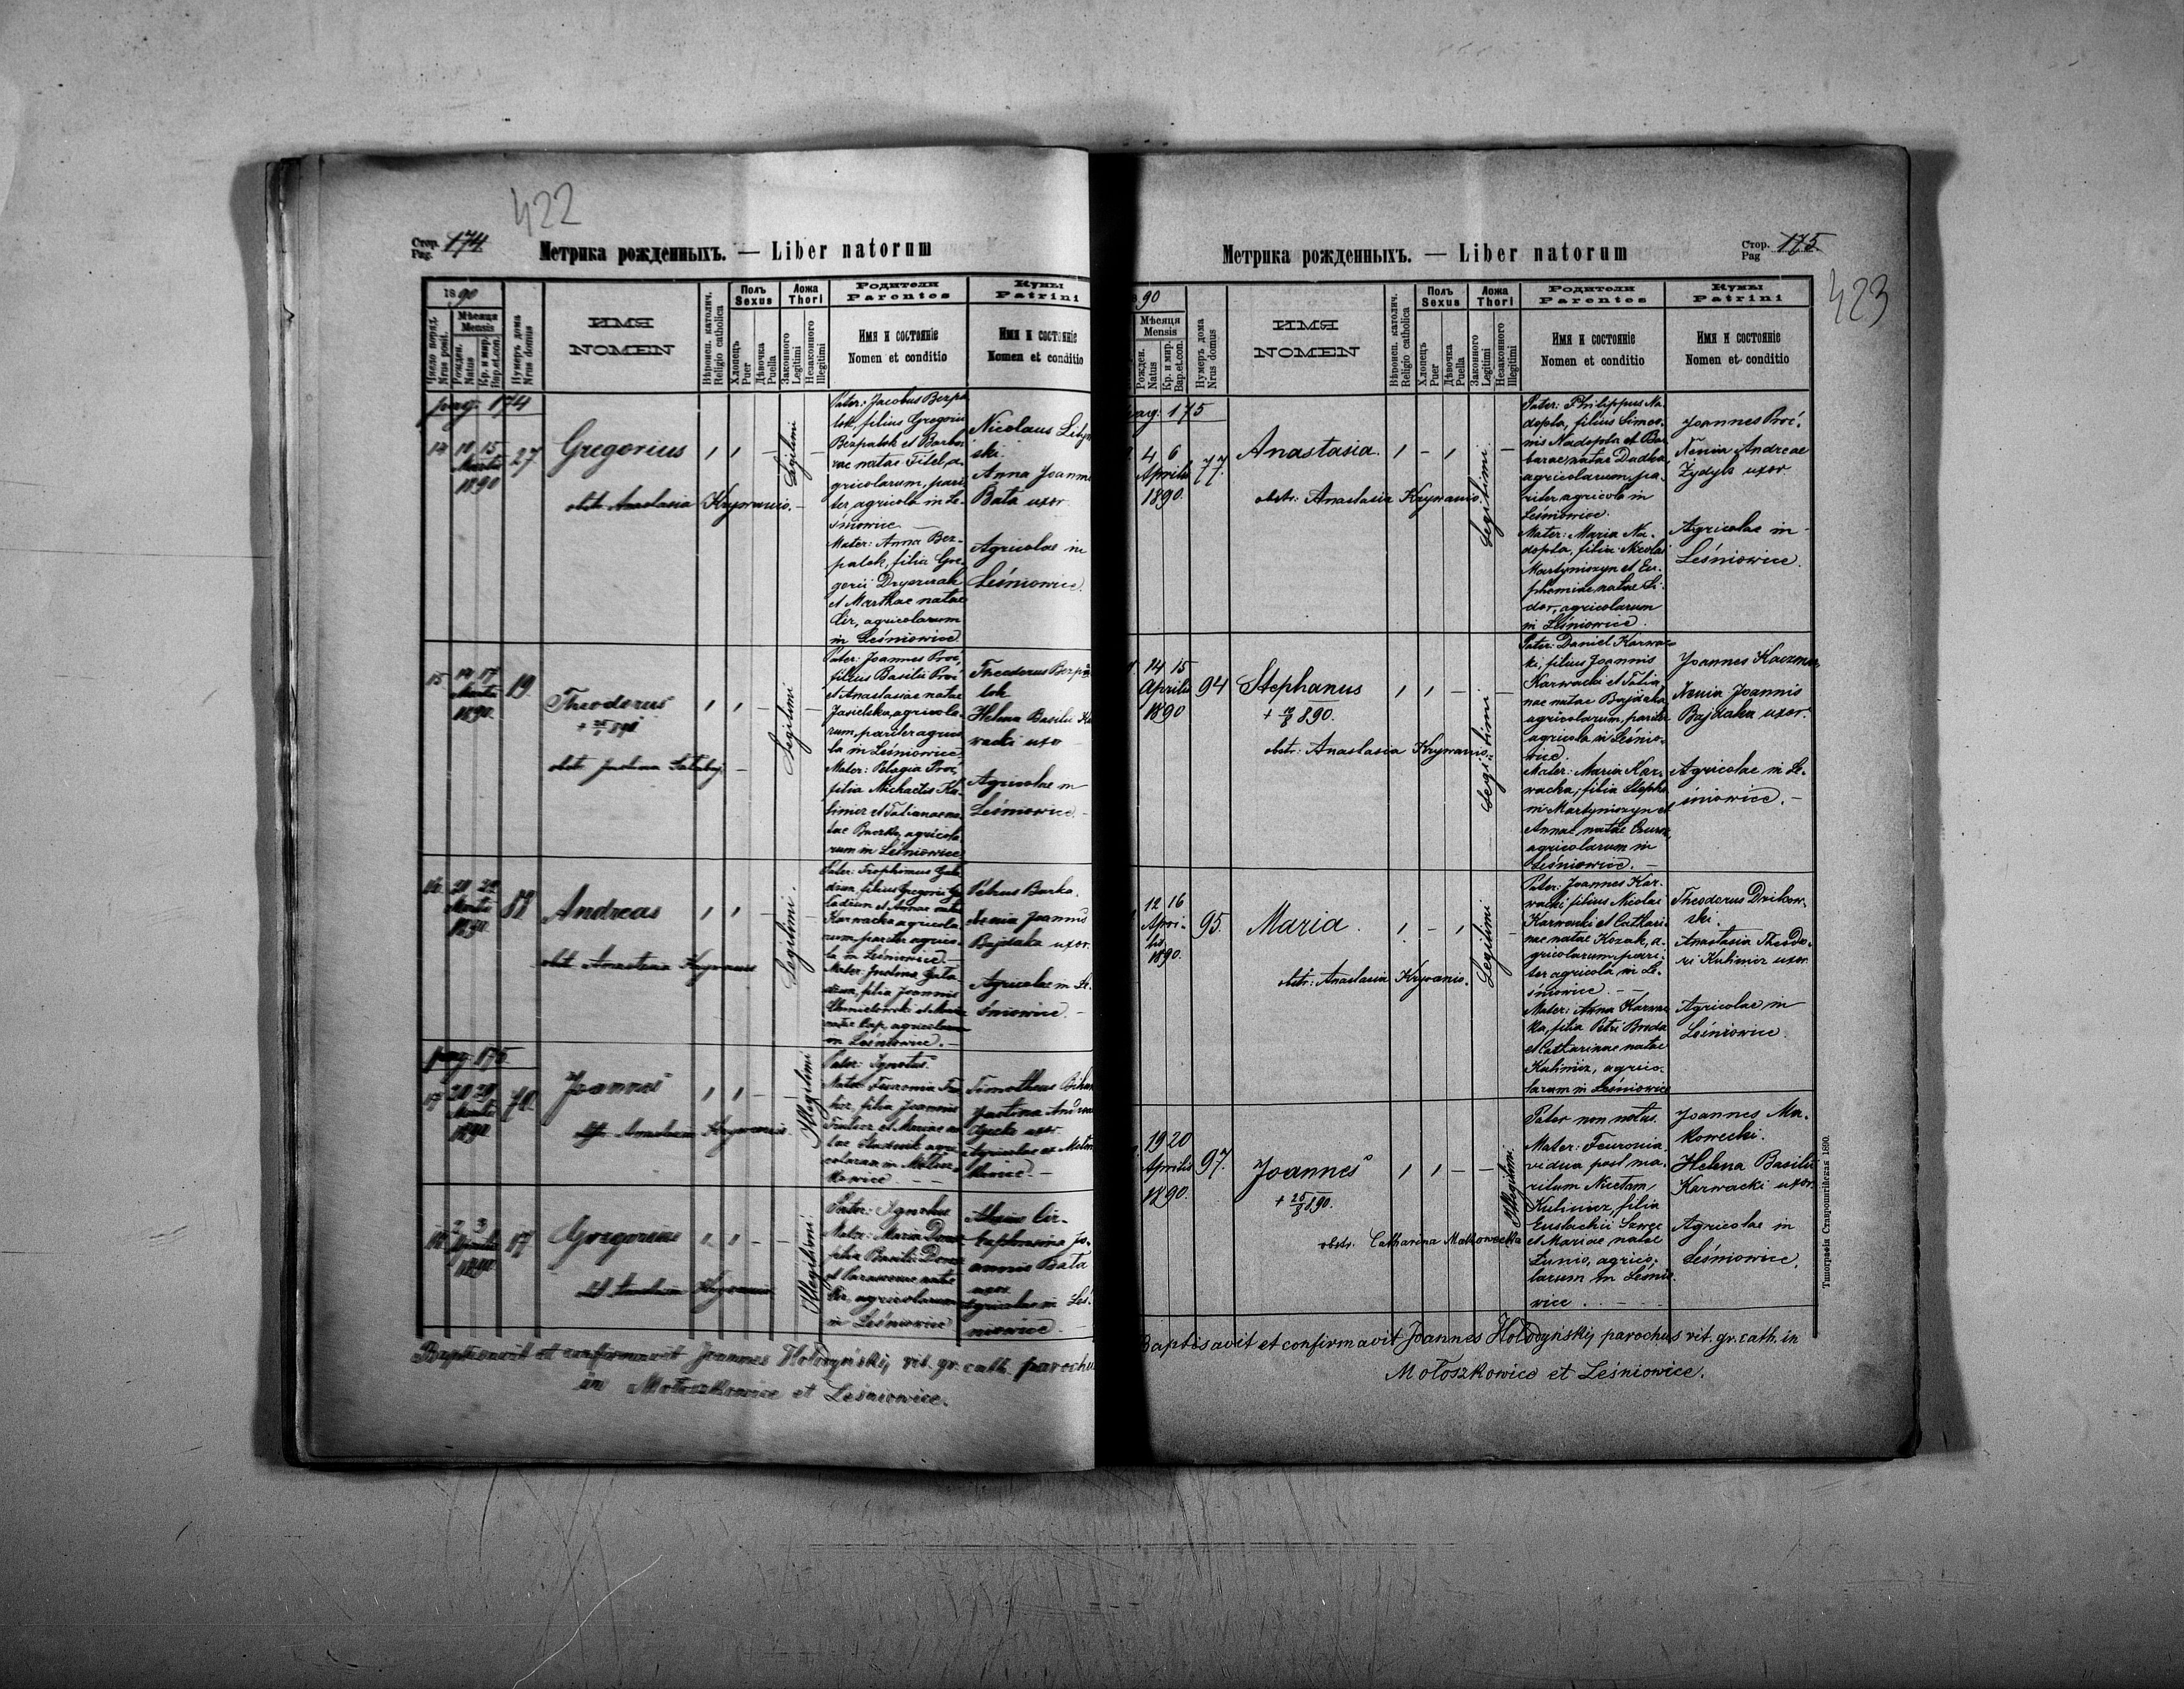 422
Стор. Pag. 174
Метрика рожденныхъ. — Liber natorum
1890
Число поряд. Nrus posit.
Мѣсяця Mensis
Рожден. Natus
Кр. и мир. Bap.et.con.
Нумеръ дома Nrus domus
ИМЯ
NOMEN
Вѣроисп. католич. Religio catholica
Полъ Sexus
Хлопець Puer
Дѣвочка Puella
Ложа Thori
Законного Legitimi
Незаконного Illegitimi
Родители
Parentes
Имя и состояніе
Nomen et conditio
Кумы
Patrini
Имя и состояніе
Nomen et conditio
pag. 174
14
10 15
Martii
1890
27
Gregorius
obstr. Anastasia Krywanio.
Legitimi
Pater: Jacobus Bezpa
lok, filius Gregorii
Bezpalok et Barba
rae natae Titel, a-
gricolarum, pari
ter agricola in Le-
śniowice
Mater: Anna Bez-
palok, filia Gre-
gorii
et Marthae natae
Cir, agricolarum
in Leśniowice
Nicolaus
ski.
Anna Joannis
Bata uxor
Agricolae in
Leśniowice.
15
14 17
Martii
1890.
19.
Theodorus
Legitimi
Pater: Joannes Proć,
filius Basilii Proć
et Anastasiae natae
Jasielska, agricola-
rum, pariter agrico
la in Leśniowice,
Mater: Pelagia Proć,
filia Michaelis Ku-
limicz et Tatianae na-
tae agricola
rum in Leśniowice
Theodorus Bezpa
lok
Helena Basilii Ka
rwacki uxor
Agricolae in
Leśniowice. -
16.
1890
Andreas
obstr. Anastasia Krywanio
Legitimi.
Pater: Trophimus
filius Gregorii
et Annae natae
Karwacka agricola
rum, pariter agrico-
la in Leśniowice.
Mater:
filia Joannis
natae Cap, agricolarum
in Leśniowice. -
Petrus Burka.
Xenia Joannis
Bajdaka uxor.
Agricolae in Le-
śniowice. -
pag. 175
17
1890
Joannes
obstr. Anastasia Krywanio.
Illegitimi
Pater: Ignotus.
Mater: Feuronia
filia Joannis
et Mariae na
tae agri
colarum in Mołosz
kowice
Timotheus
Justina Andreae
uxor
Agricolae ex Mołosz
kowice. -
18
2 3
Aprilis
1890
17
Gregorius
obstr. Anastasia Krywanio
Illegitimi
Pater: Ignotus
Mater: Maria
filia Basilii
et Parascevae natae
Cir, agricolarum
in Leśniowice
Cir.
Euphrosina Jo-
annis Bata
uxor
Agricolae in Leś-
niowice.
Baptisavit et confirmavit Joannes Hołodyńskij rit. gr. cath. parochus
in Mołoszkowice et Leśniowice.
Метрика рожденныхъ. — Liber natorum
Стор. Pag 175
423
90
Мѣсяця Mensis
Рожден. Natus
Кр. и мир. Bap.et.con.
Нумеръ дома Nrus domus
ИМЯ
NOMEN
Вѣроисп. католич. Religio catholica
Полъ Sexus
Хлопецъ Puer
Дѣвочка Puella
Ложа Thori
Законного Legitimi
Незаконного Illegitimi
Родители
Parentes
Имя и состояніе
Nomen et conditio
Кумы
Patrini
Имя и состояніе
Nomen et conditio
pag. 175
4 6
Aprilis
1890.
77.
Anastasia.
obstr: Anastasia Krywanio.
Legitimi.
Pater: Philippus Na-
dopta, filius Simeo-
nis Nadopta et Bar
barae, natae Dudka,
agricolarum, pa-
riter agricola in
Leśniowice.
Mater: Maria Na-
dopta, filia Nicolai
Martyniszyn et Eu-
phemiae natae Si-
dor, agricolarum
in Leśniowice.
Joannes Proć.
Xenia Andreae
Żydyk uxor
Agricolae in
Leśniowice.
14 15
Aprilis
1890
94
Stephanus
obstr: Anastasia Krywanio.
Legitimi
Pater: Daniel Karwa-
ki, filius Joannis
Karwacki et Tatia-
nae natae Bajdaka
agricolarum, pariter
agricola in Leśnio-
wice.
Mater: Maria Kar-
wacka, filia Stepha
ni Martyniszyn et
Annae natae
agricolarum in
Leśniowice. -
Joannes Kaczmar
Xenia Joannis
Bajdaka uxor.
Agricolae in Le-
śniowice. -
12 16
Apri-
lis
1890.
95.
Maria.
obstr: Anastasia Krywanio.
Legitimi
Pater: Joannes Kar-
wacki filius Nicolai
Karwacki et Cathari
nae natae Kozak, a-
gricolarum, pari-
ter agricola in Le-
śniowice. -
Mater: Anna Karwac
ka, filia Petri Breda
et Catharinae natae
Kulimicz, agrico-
larum in Leśniowice
Theodorus Drikow-
ski.
Anastasia Theodo-
ri Kulimicz uxor
Agricolae in
Leśniowice.
19 20
Aprilis
1890.
97.
Joannes
obstr. Catharina Makowecka
Illegitimi.
Pater non notus.
Mater: Feuronia
vidua post ma-
ritum Nicetam
Kulimicz, filia
Eustachii
et Mariae natae
agrico-
larum in Leśnio-
wice.
Joannes Ma-
kowecki.
Helena Basilii
Karwacki uxor.
Agricolae in
Leśniowice.
Типографія Ставропигійская 1890.
Baptisavit et confirmavit Joannes Hołodyńskij parochus rit. gr. cath. in
Mołoszkowice et Leśniowice.